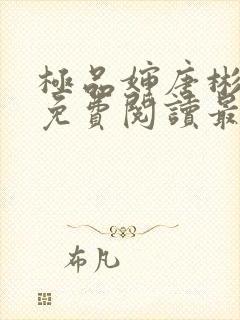 極品婶唐彬
免費閱讀最
布凡